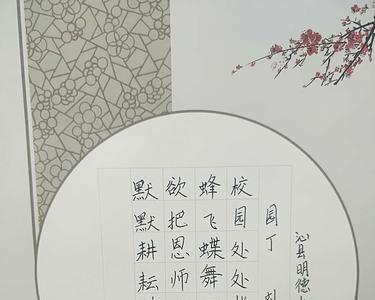 沁县明德
园丁
校园处处
蜂飞蝶舞
欲把恩师
默默耕耘